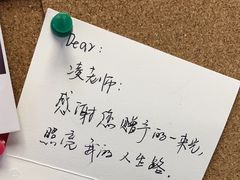 Dear:
凌老师:
感谢您赠予的一束光,
照亮我的人生路.